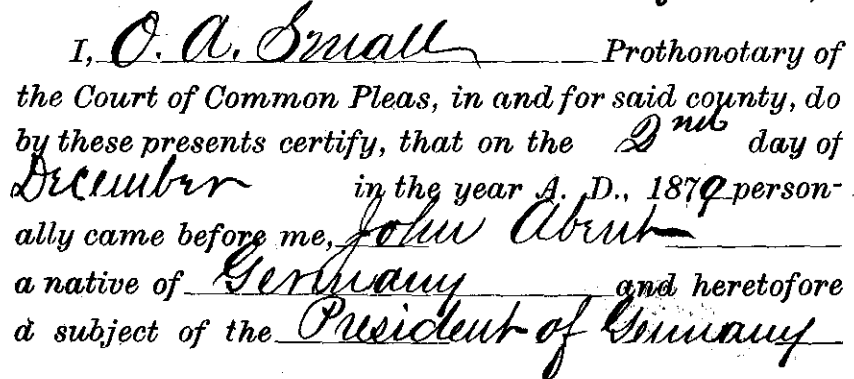 I, O. A. Small Prothonotary of
the Court of Common Pleas, in and for said county, do
by these presents certify, that on the 2nd day of
December in the year A. D., 1879 person-
ally came before me, John Abent
a native of Germany and heretofore
a subject of the President of Germany